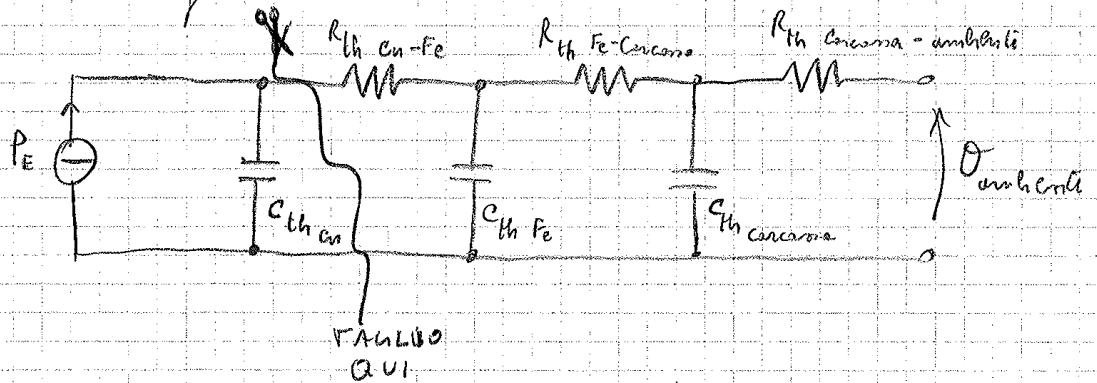 R th cu-Fe
R th Fe-Carcassa
R th carcassa-ambiente
P E
C th cu
C th Fe
C th carcassa
θ ambiente
TAGLIO
QUI